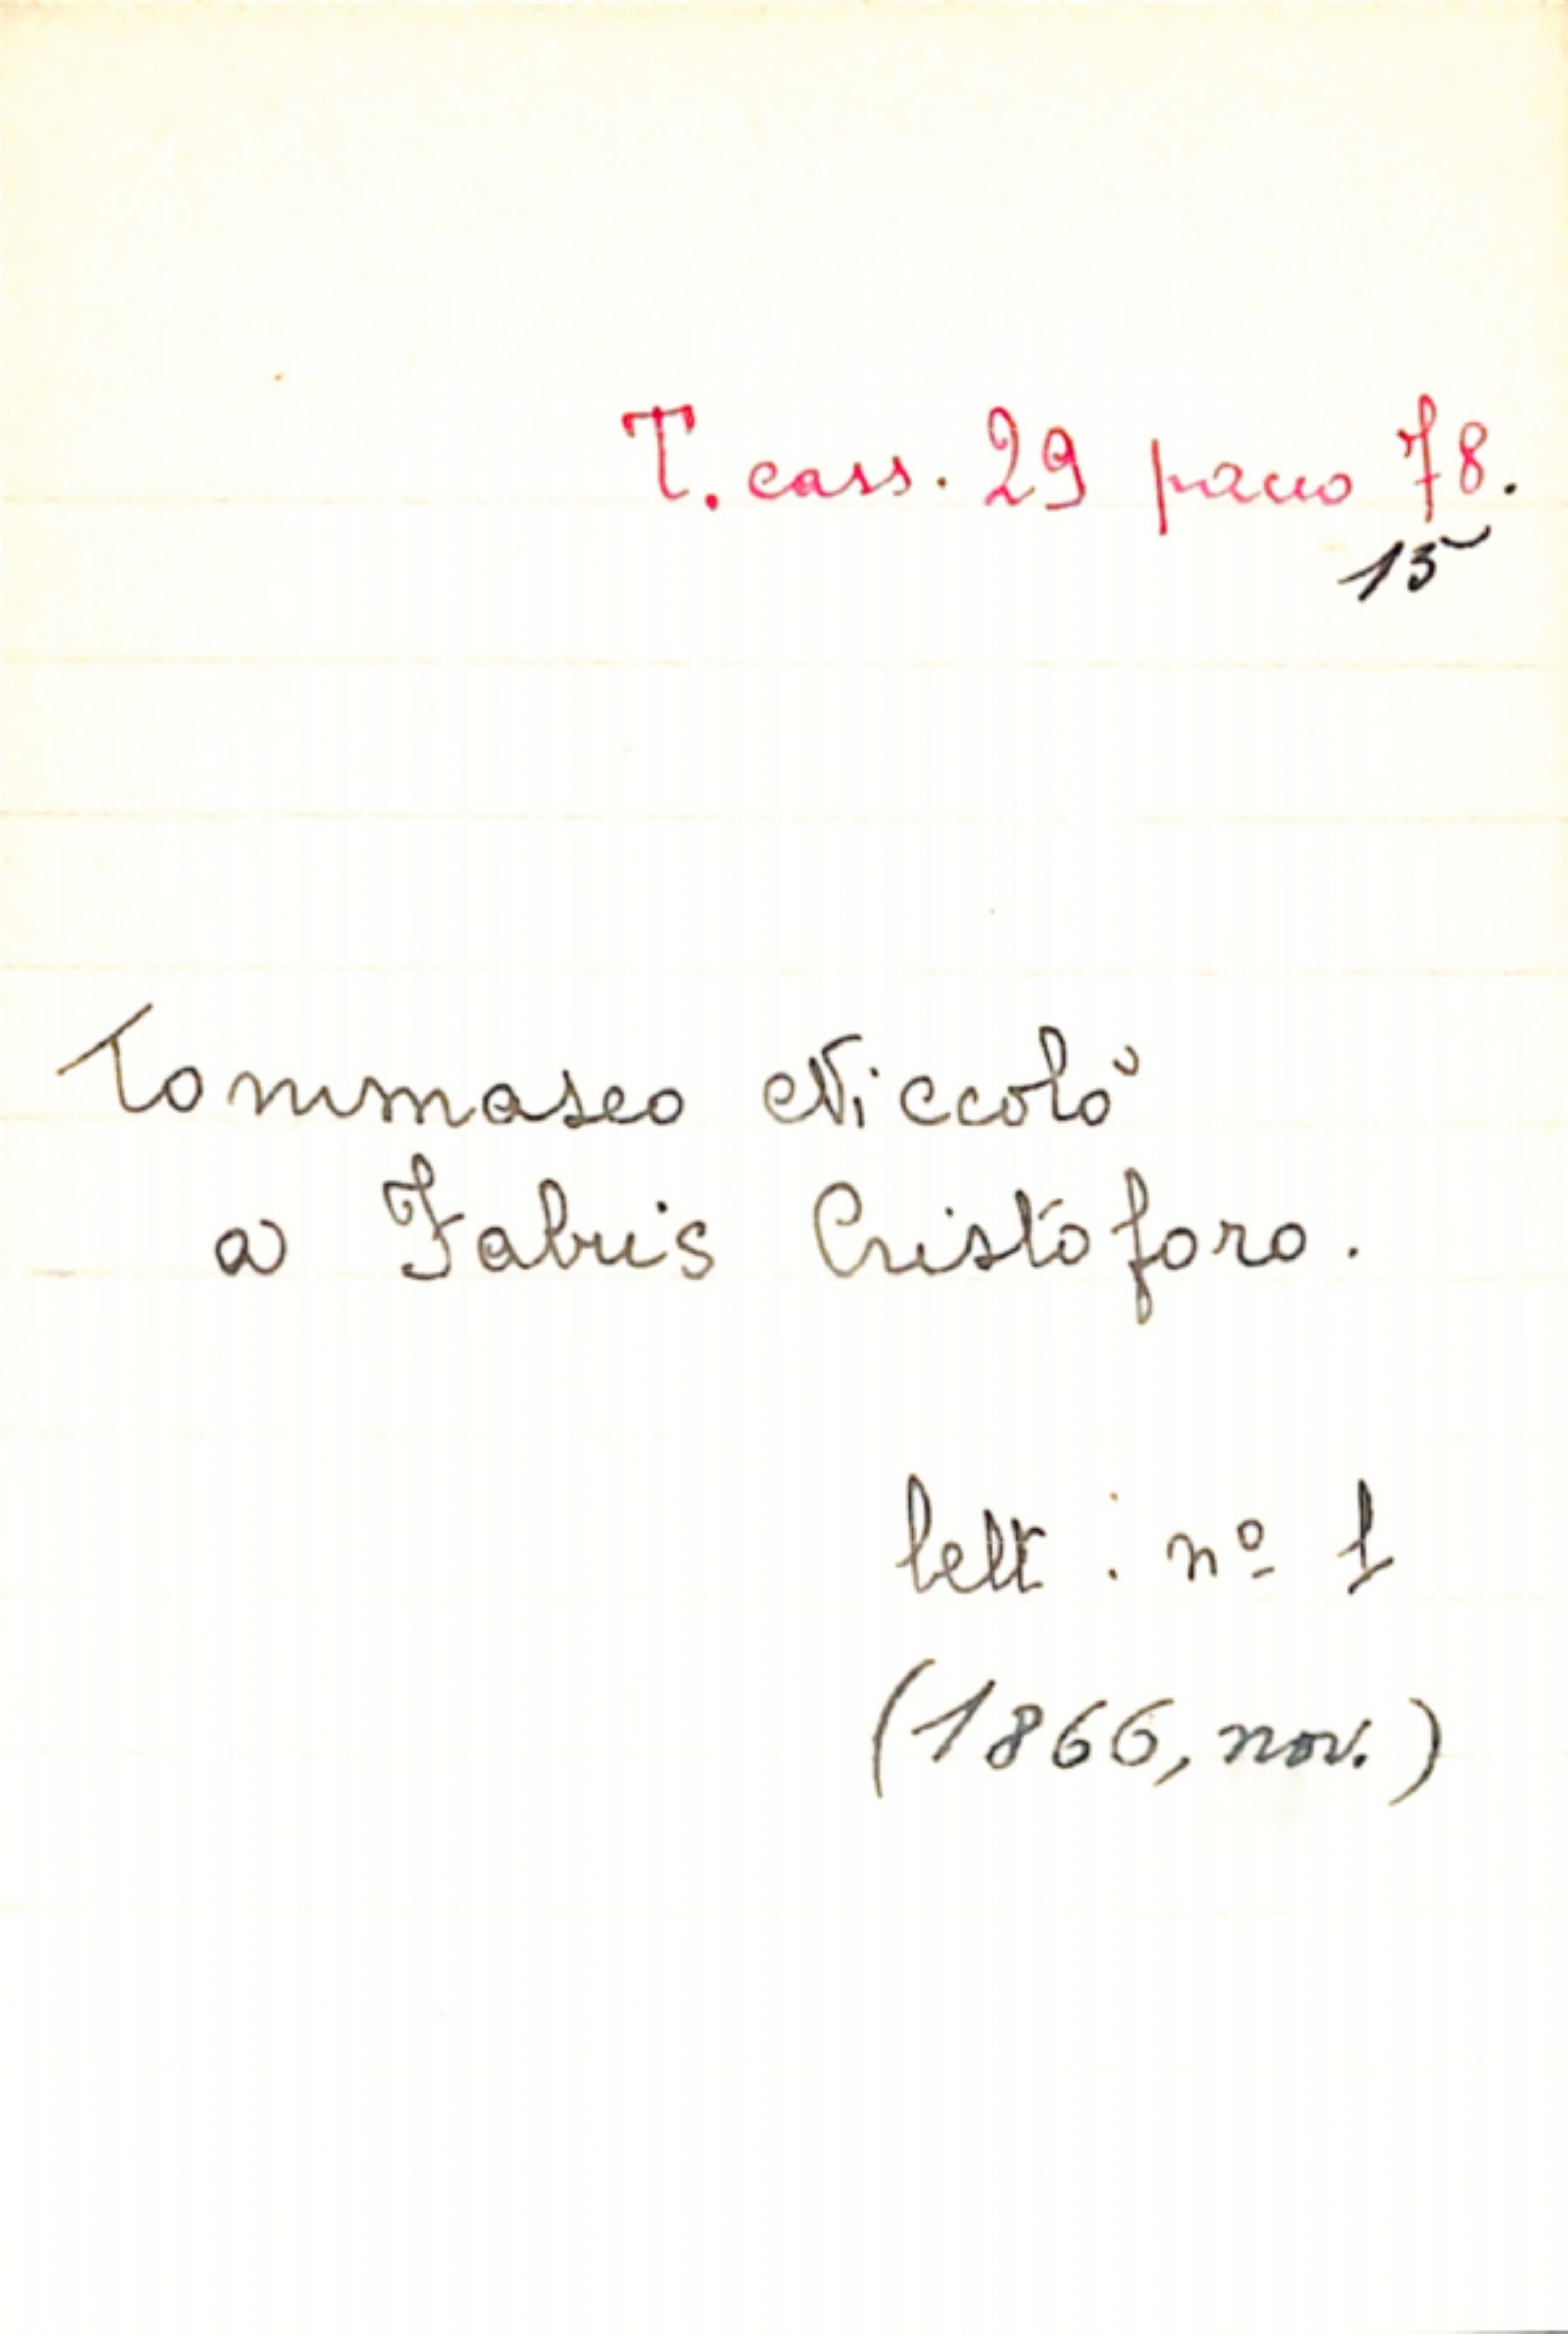 T. cass. 29 pacco 78.
15
Tommaseo Niccolò
a Fabris Cristoforo.
lett. nº 1
(1866, nov.)